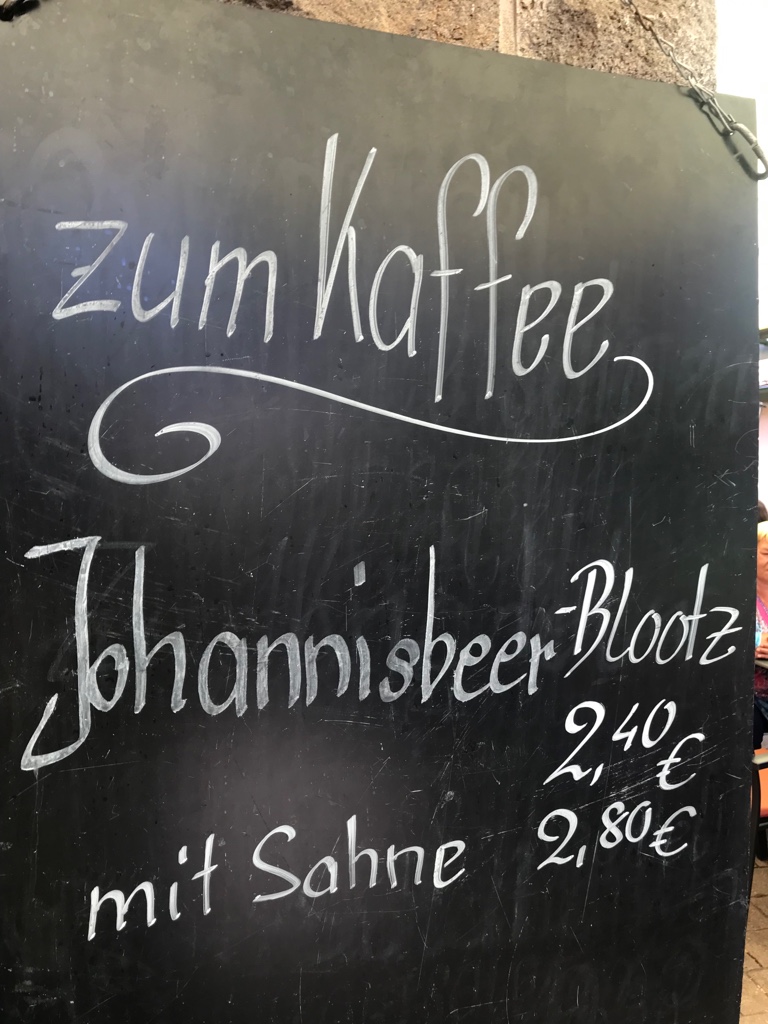 zum Kaffee
Johannisbeer-Blootz
2,40 €
mit Sahne 2,80 €